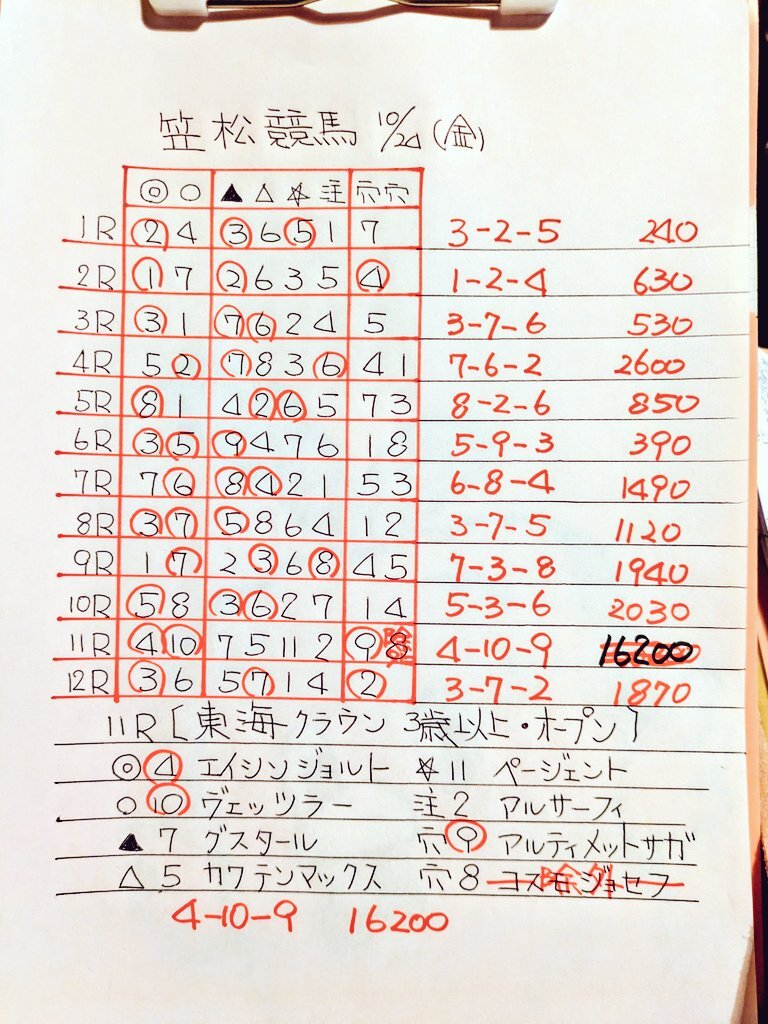 笠松競馬 10/24(金)
◎○▲△☆注穴穴
1R ②4 ③6⑤1 7 3-2-5 240
2R ①7 ②635 ④ 1-2-4 630
3R ③1 ⑦⑥24 5 3-7-6 530
4R 5② ⑦83⑥ 41 7-6-2 2600
5R ⑧1 4②⑥5 73 8-2-6 850
6R ③⑤ ⑨476 18 5-9-3 390
7R 7⑥ ⑧④21 53 6-8-4 1490
8R ③⑦ ⑤864 12 3-7-5 1120
9R 1⑦ 2③6⑧ 45 7-3-8 1940
10R ⑤8 ③⑥27 14 5-3-6 2030
11R ④⑩ 7 5 11 2 ⑨8 4-10-9 16200
12R ③6 5⑦14 ② 3-7-2 1870
11R[東海クラウン 3歳以上・オープン]
◎④ エイシンジョルト ☆11 ページェント
○⑩ ヴェッツラー 注2 アルサーフィ
▲7 グスタール 穴⑨ アルティメットサガ
△5 カワテンマックス 穴8 コスモジョセフ 除外
4-10-9 16200